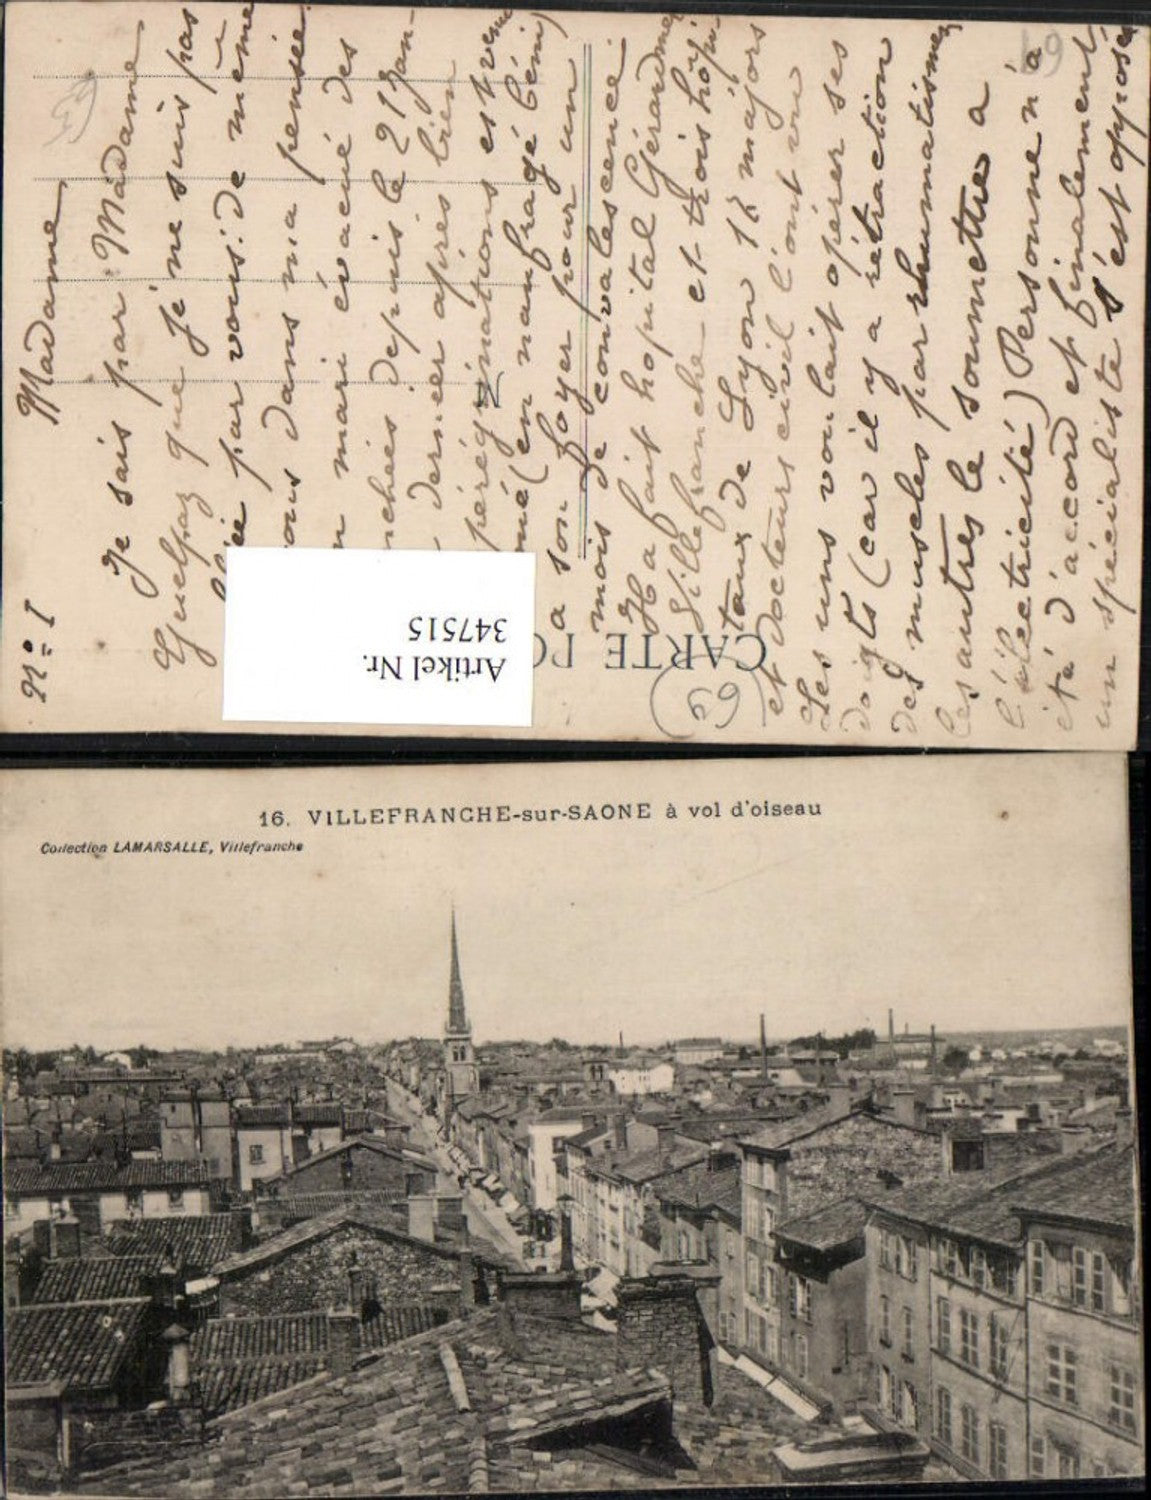 n° I
Madame
Je sais par Madame
Guelfaz que je ne suis pas
par vous : de même
dans ma pensée
mari évacué des
depuis le 21 Jan-
dernier après bien
pérégrinations est venu
(en naufragé béni)
a son foyer pour un
mois de convalescence.
Il a fait hopital Gérardmer
Villefranche et trois hôpi-
taux de Lyon 12 majors
et docteurs civil l'ont vu
Les uns voulait opérer ses
doigts (car il y a rétraction
des muscles par rhumatismes
les autres le soumettre a
l'électricité) Personne n'a
été d'accord et finalement
un spécialiste s'est opposé
CARTE PO
69
69
Artikel Nr.
347515
16. VILLEFRANCHE-sur-SAONE à vol d'oiseau
Collection LAMARSALLE, Villefranche